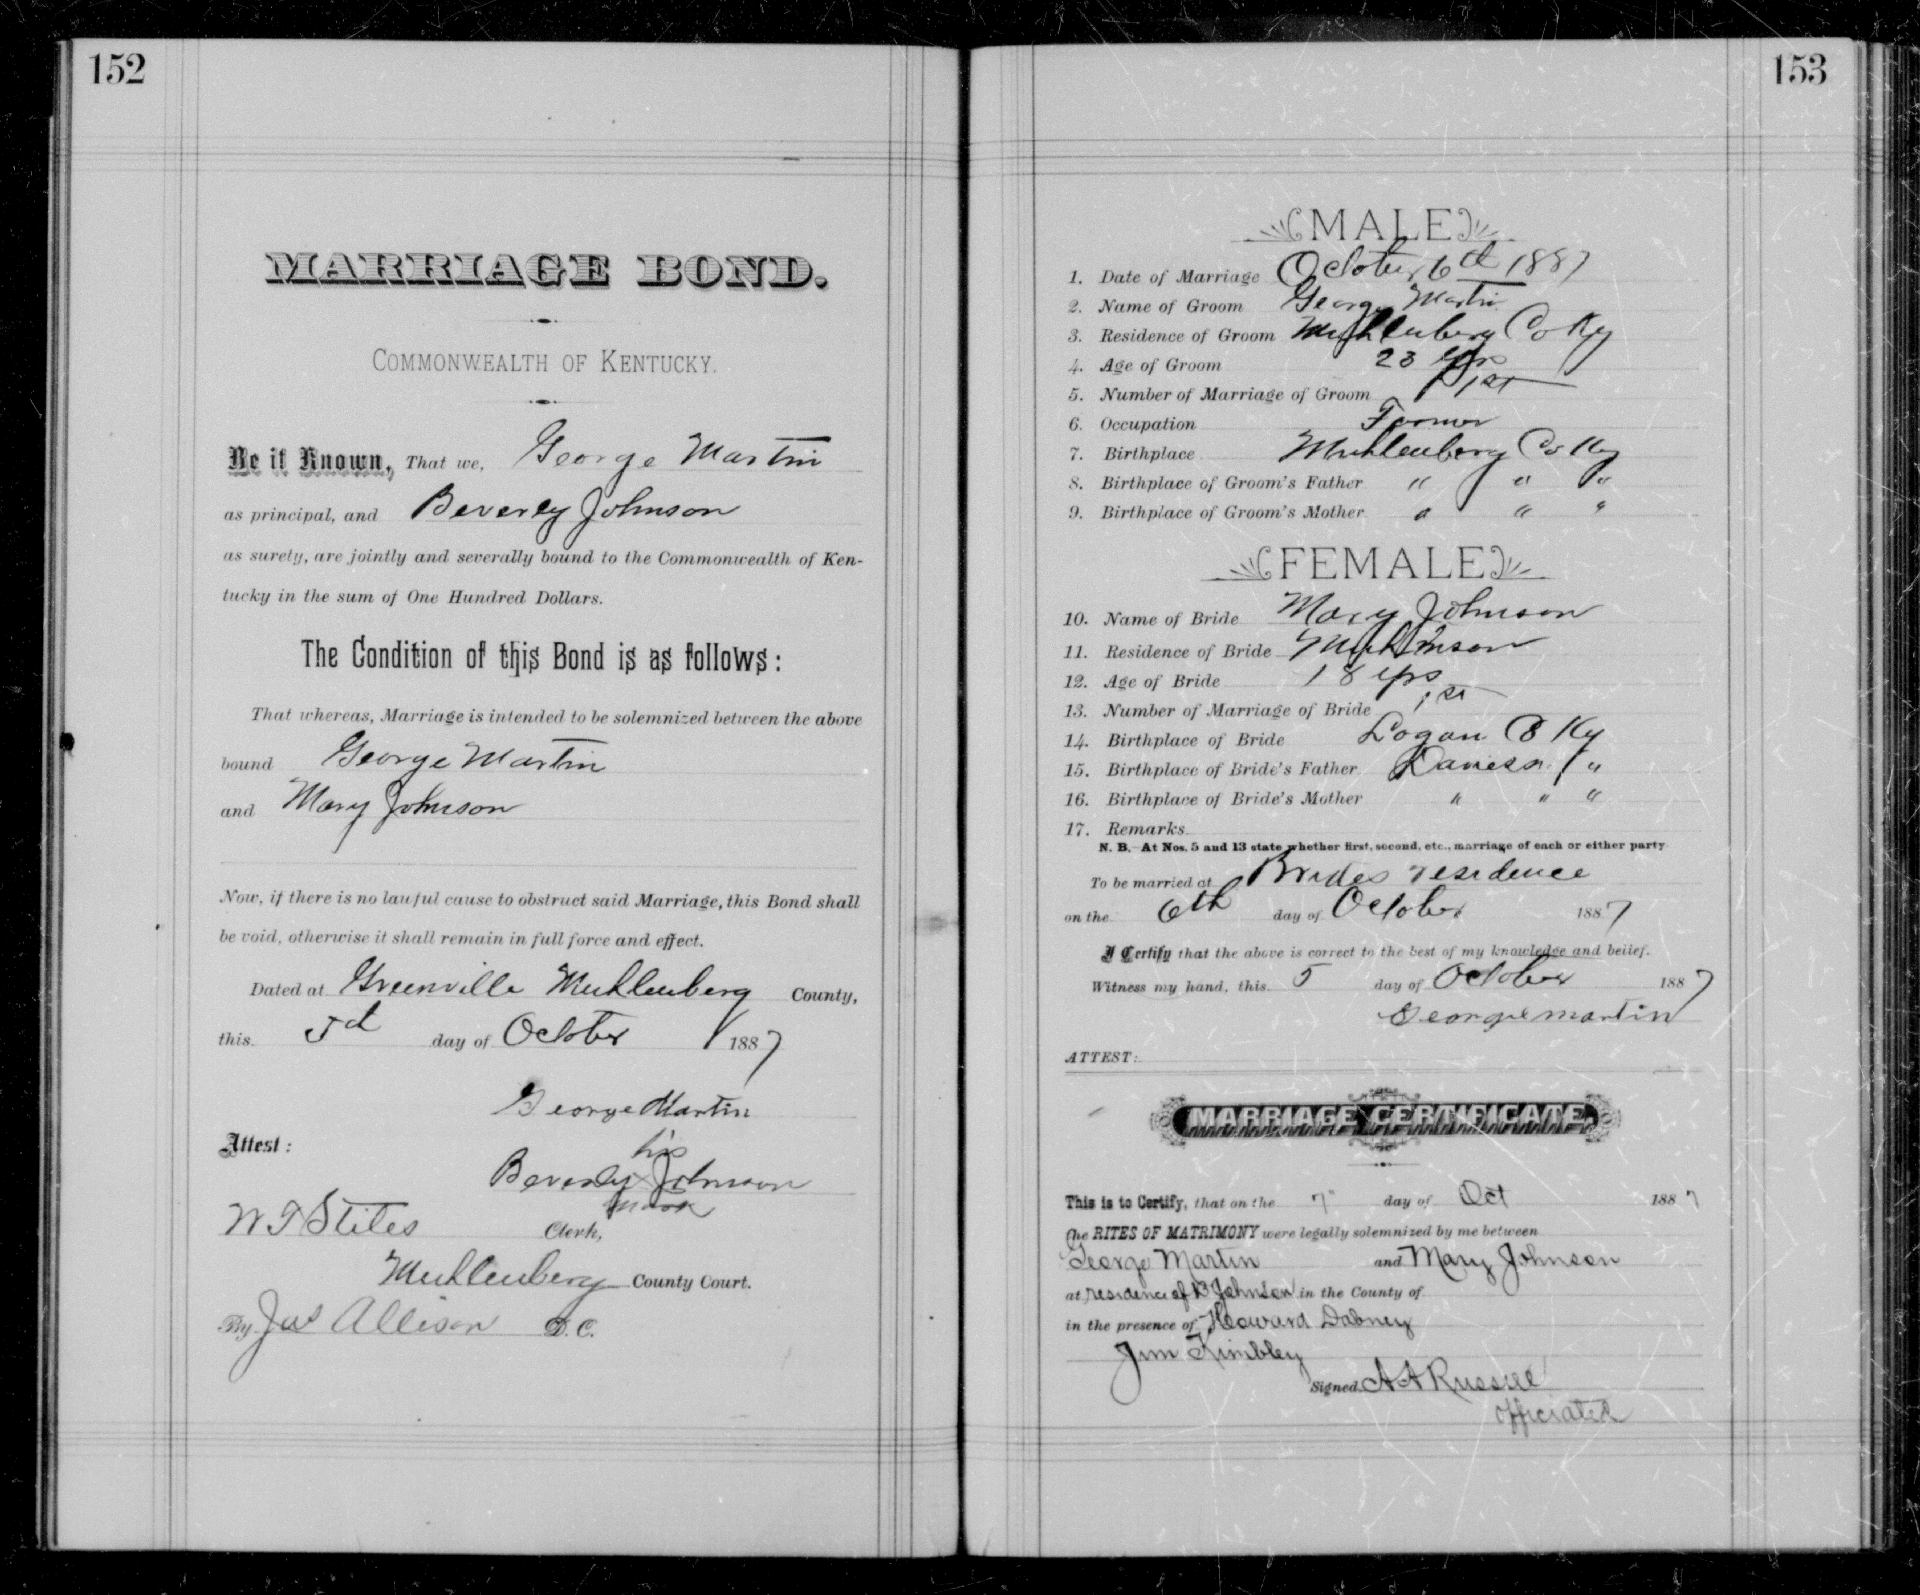 152
MARRIAGE BOND.
COMMONWEALTH OF KENTUCKY.
Be it Known, That we, George Martin
as principal, and Beverly Johnson
as surety, are jointly and severally bound to the Commonwealth of Ken-
tucky in the sum of One Hundred Dollars.
The Condition of this Bond is as follows:
That whereas, Marriage is intended to be solemnized between the above
bound George Martin
and Mary Johnson
Now, if there is no lawful cause to obstruct said Marriage, this Bond shall
be void, otherwise it shall remain in full force and effect.
Dated at Greenville Muhlenberg County,
this 5d day of October 1887
George Martin
his
Attest:
Beverly x Johnson
mark
W T Stiles Clerk,
Muhlenberg County Court.
By Jas Allison D. C.
153
MALE
1. Date of Marriage October 6d 1887
2. Name of Groom George Martin
3. Residence of Groom Muhlenberg Co Ky
4. Age of Groom 23 yrs
5. Number of Marriage of Groom 1st
6. Occupation Farmer
7. Birthplace Muhlenberg Co Ky
8. Birthplace of Groom's Father " " "
9. Birthplace of Groom's Mother " " "
FEMALE
10. Name of Bride Mary Johnson
11. Residence of Bride
12. Age of Bride 18 yrs
13. Number of Marriage of Bride 1st
14. Birthplace of Bride Logan Co Ky
15. Birthplace of Bride's Father Daviess "
16. Birthplace of Bride's Mother " " "
17. Remarks
N. B.—At Nos. 5 and 13 state whether first, second, etc., marriage of each or either party
To be married at Brides residence
on the 6th day of October 1887
I Certify that the above is correct to the best of my knowledge and belief.
Witness my hand, this 5 day of October 1887
George Martin
ATTEST:
MARRIAGE CERTIFICATE.
This is to Certify, that on the 7" day of Oct 1887
the RITES OF MATRIMONY were legally solemnized by me between
George Martin and Mary Johnson
at residence of B Johnson in the County of
in the presence of Howard Dabney
Jim Kimbley
Signed A A Russell
officiated